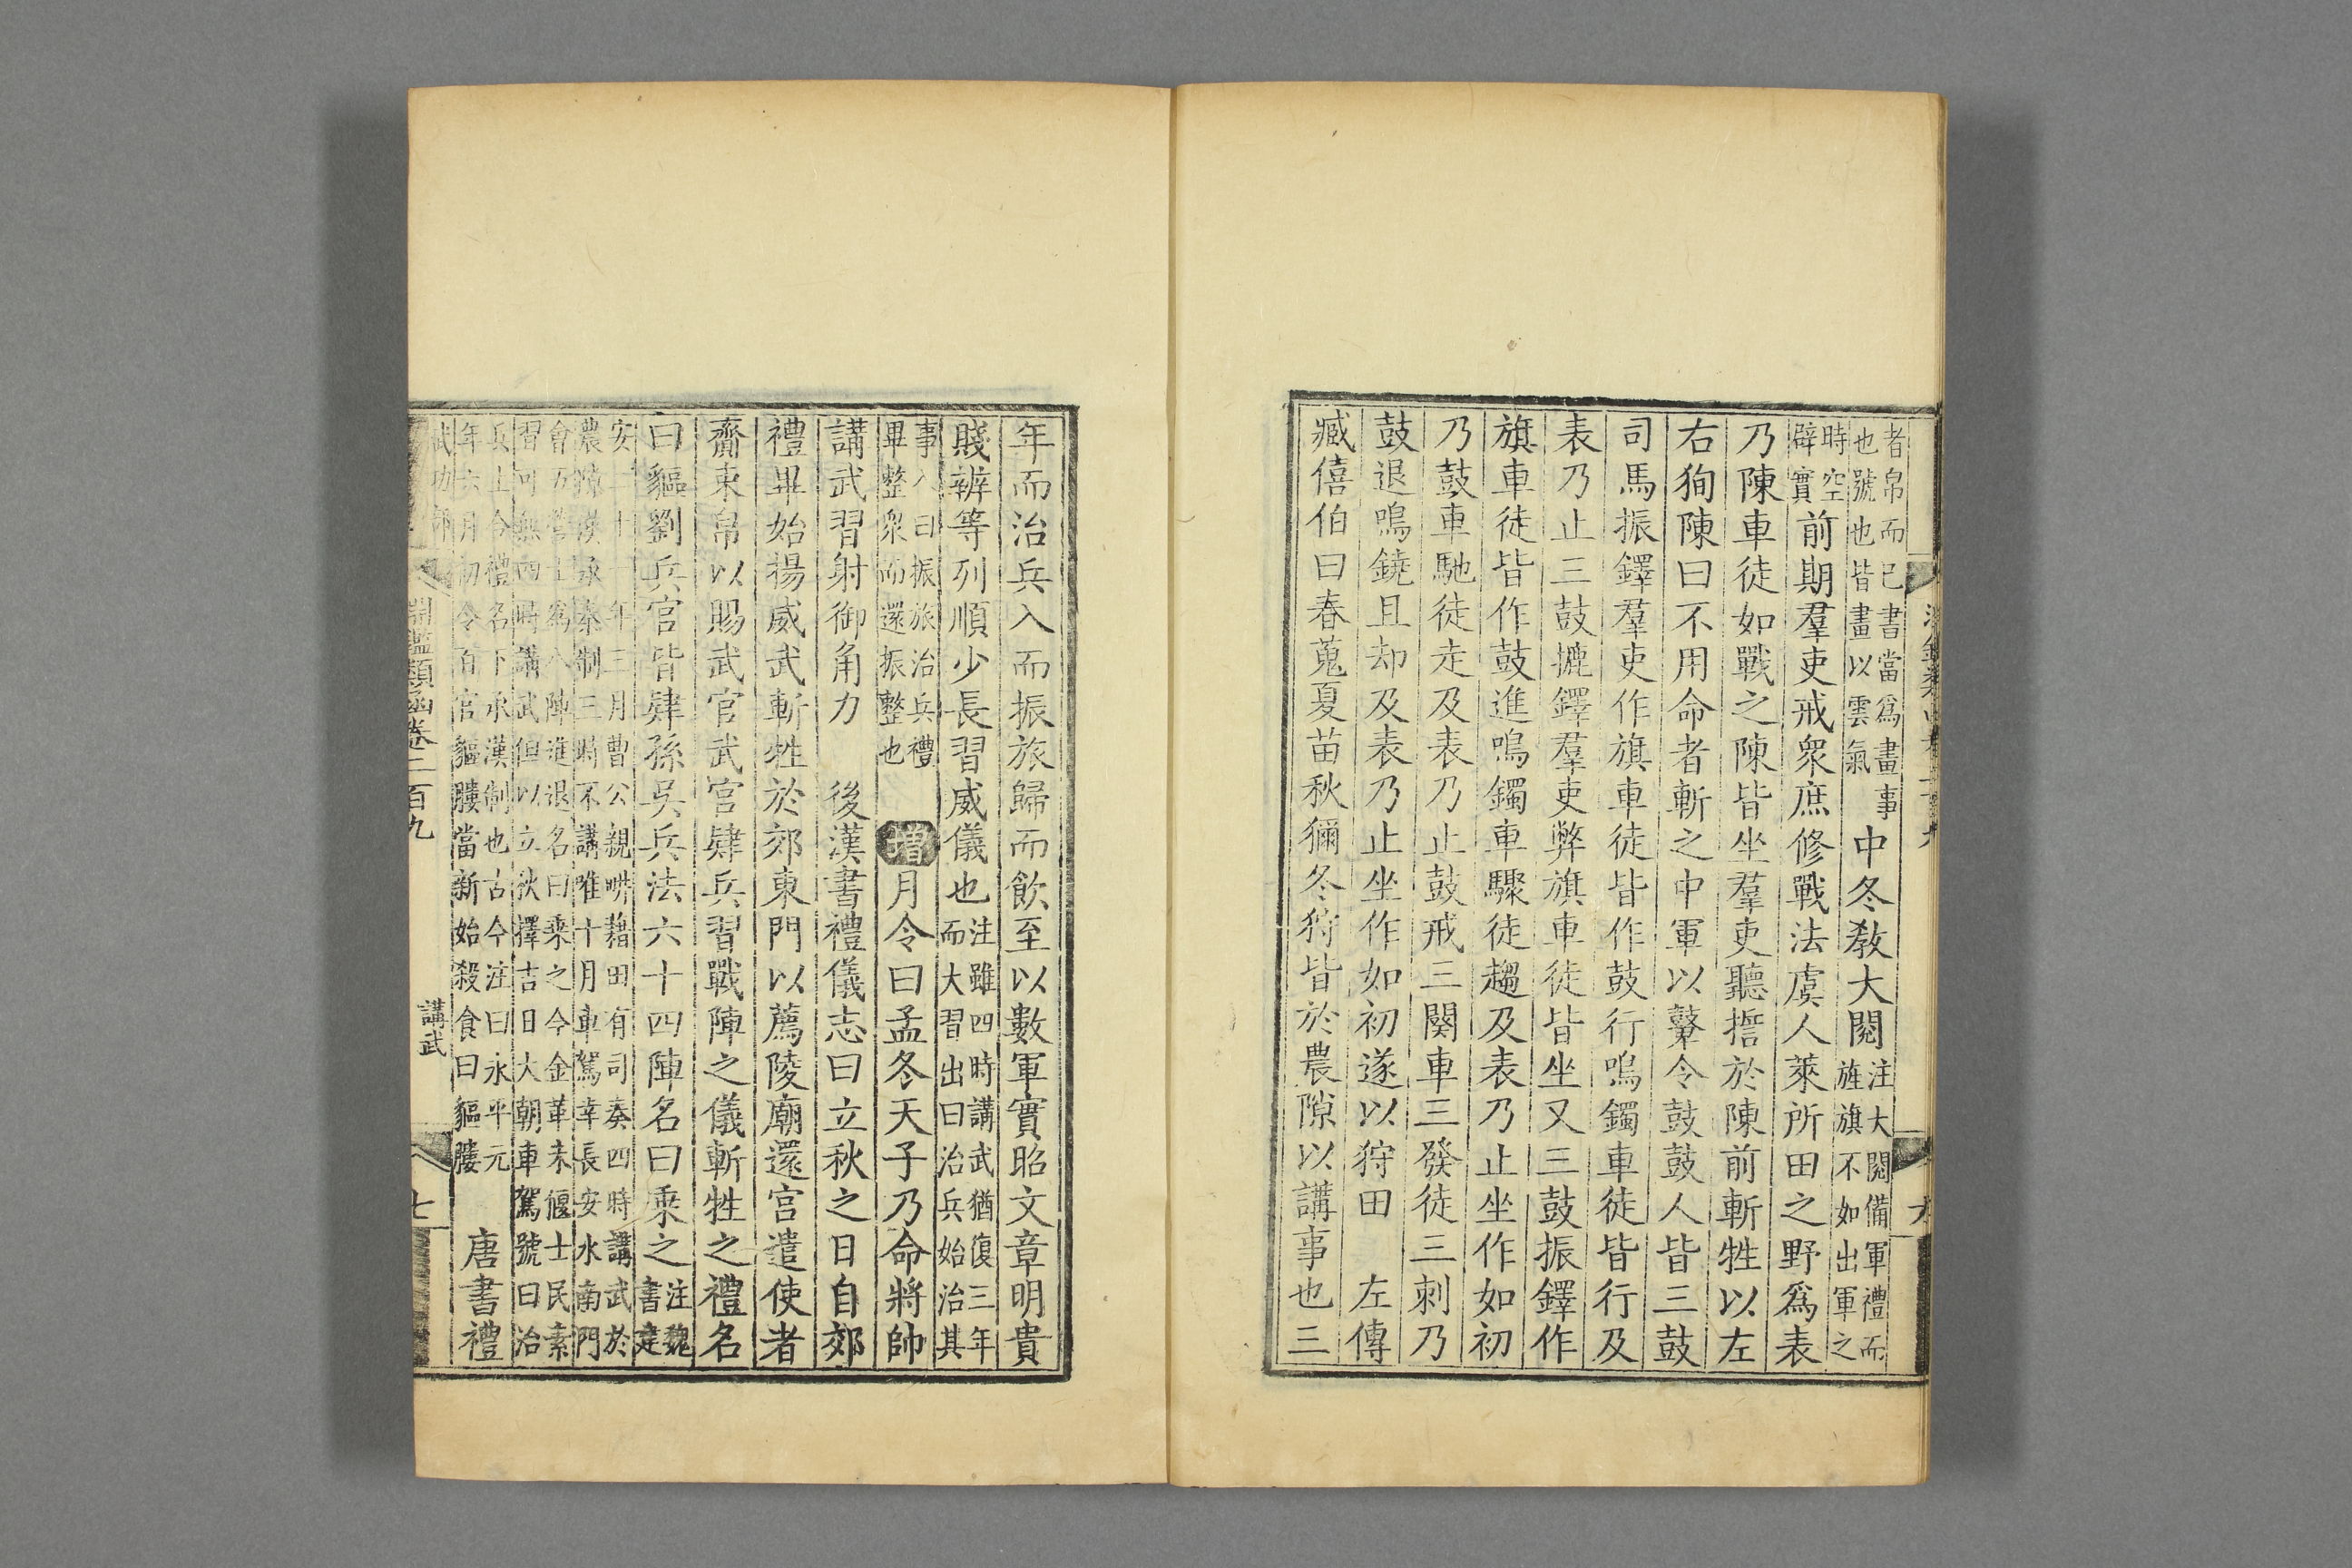 者帛而已書當爲畫事
也號也皆畫以雲氣
中冬敎大閱
注大閱備軍禮而
旌旗不如出軍之
時空
辟實
前期羣吏戒衆庶修戰法虞人萊所田之野爲表
乃陳車徒如戰之陳皆坐羣吏聽誓於陳前斬牲以左
右狥陳曰不用命者斬之中軍以鼙令鼓鼓人皆三鼓
司馬振鐸羣吏作旗車徒皆作鼓行鳴鐲車徒皆行及
表乃止三鼓摝鐸羣吏弊旗車徒皆坐又三鼓振鐸作
旗車徒皆作鼓進鳴鐲車驟徒趨及表乃止坐作如初
乃鼓車馳徒走及表乃止鼓戒三闋車三發徒三刺乃
鼓退鳴鐃且却及表乃止坐作如初遂以狩田 左傳
臧僖伯曰春蒐夏苗秋獮冬狩皆於農隙以講事也三
年而治兵入而振旅歸而飲至以數軍實昭文章明貴
賤辨等列順少長習威儀也
注雖四時講武猶復三年
而大習出曰治兵始治其
事入曰振旅治兵禮
畢整衆而還振整也
增月令曰孟冬天子乃命將帥
講武習射御角力 後漢書禮儀志曰立秋之日自郊
禮畢始揚威武斬牲於郊東門以薦陵廟還宮遣使者
齎束帛以賜武官武官肄兵習戰陣之儀斬牲之禮名
曰貙劉兵官皆肄孫吳兵法六十四陣名曰乘之
注魏
書建
安二十一年三月曹公親畊藉田有司奏四時講武於
農隙漢承秦制三時不講唯十月車駕幸長安水南門
會五營士爲八陣進退名曰乘之今金革未偃士民素
習可無四時講武但以立秋擇吉日大朝車駕號曰治
兵上合禮名下承漢制也古今注曰永平元
年六月初令百官貙膢當新始殺食曰貙膢
唐書禮
淵鑑類函卷二百九 講武 七